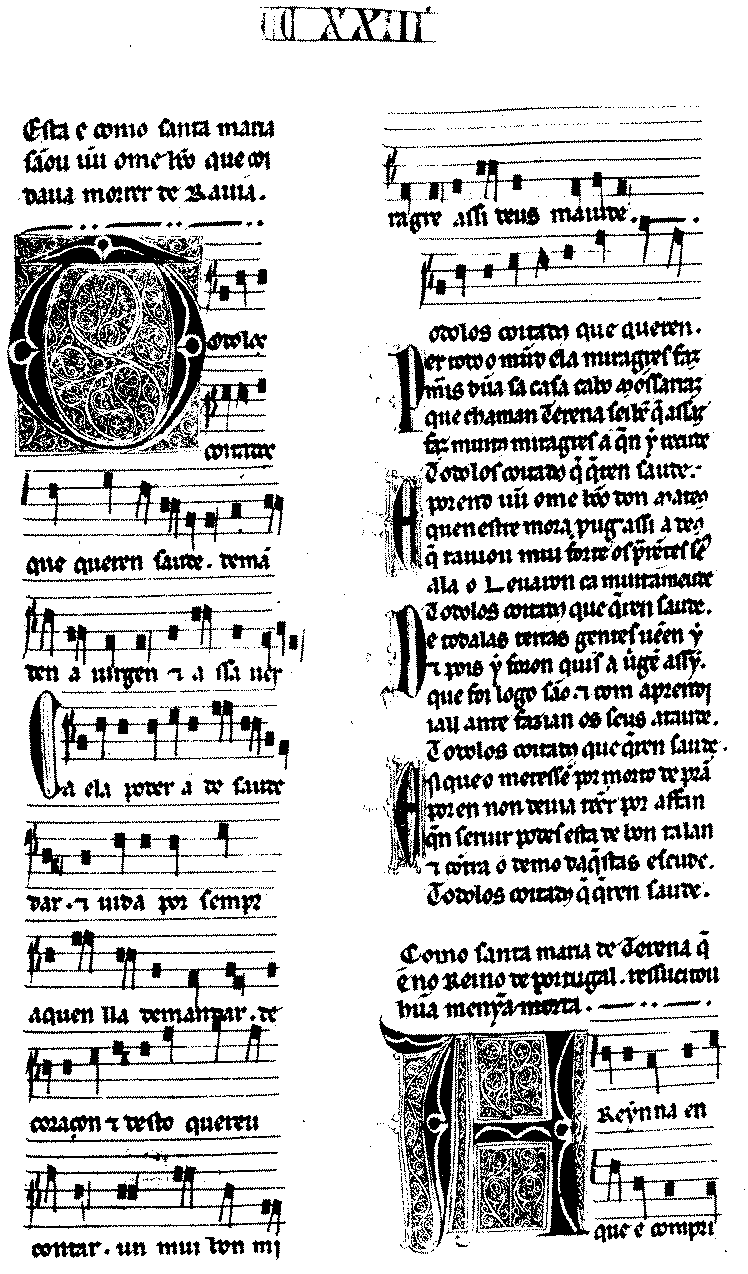 CXXIII
Esta e como santa maria
sãou ũu ome bõo que coi
daua morrer de Rauia.
Odolos
coitados
que queren saude. demã
den a uirgen ⁊ a ssa uer
Ca ela poder á de saude
dar. ⁊ uida por sempr
aquen lla demandar. de
coraçon ⁊ desto quereu
contar. un mui bon mi
ragre assi deus maiude.
odolos coitados que queren.
Per todo o mũdo ela miragres faz
mais dũa sa casa cabo
que chaman Terena seihẽ q̃
faz muitos miragres a q̃n y
Todolos coitados q̃ q̃ren saude.
porend ũu ome bõo don
quen estremora assi
q̃ rauiou mui forte
ala o Leuaron ca muitamẽude
Todolos coitados que q̃ren saude.
De todalas terras gentes uẽen y
⁊ pois y foron quis a uigẽ assy.
que foi logo são. ⁊ com aprendi
iau ante fazian os seus ataude.
Todolos coitados que q̃ren saude.
A que o meresse por morto de prã
poren non deuia teer por affan
q̃n seruir podesesta de bon talan
⁊ cõtra o demo daq̃stas escude.
Todolos coitados q̃ q̃ren saude.
Como santa maria de Terena q̃
é no Reino de portugal. ressucitou
hũa menỹa morta.
A Reỹnna en
que é compri